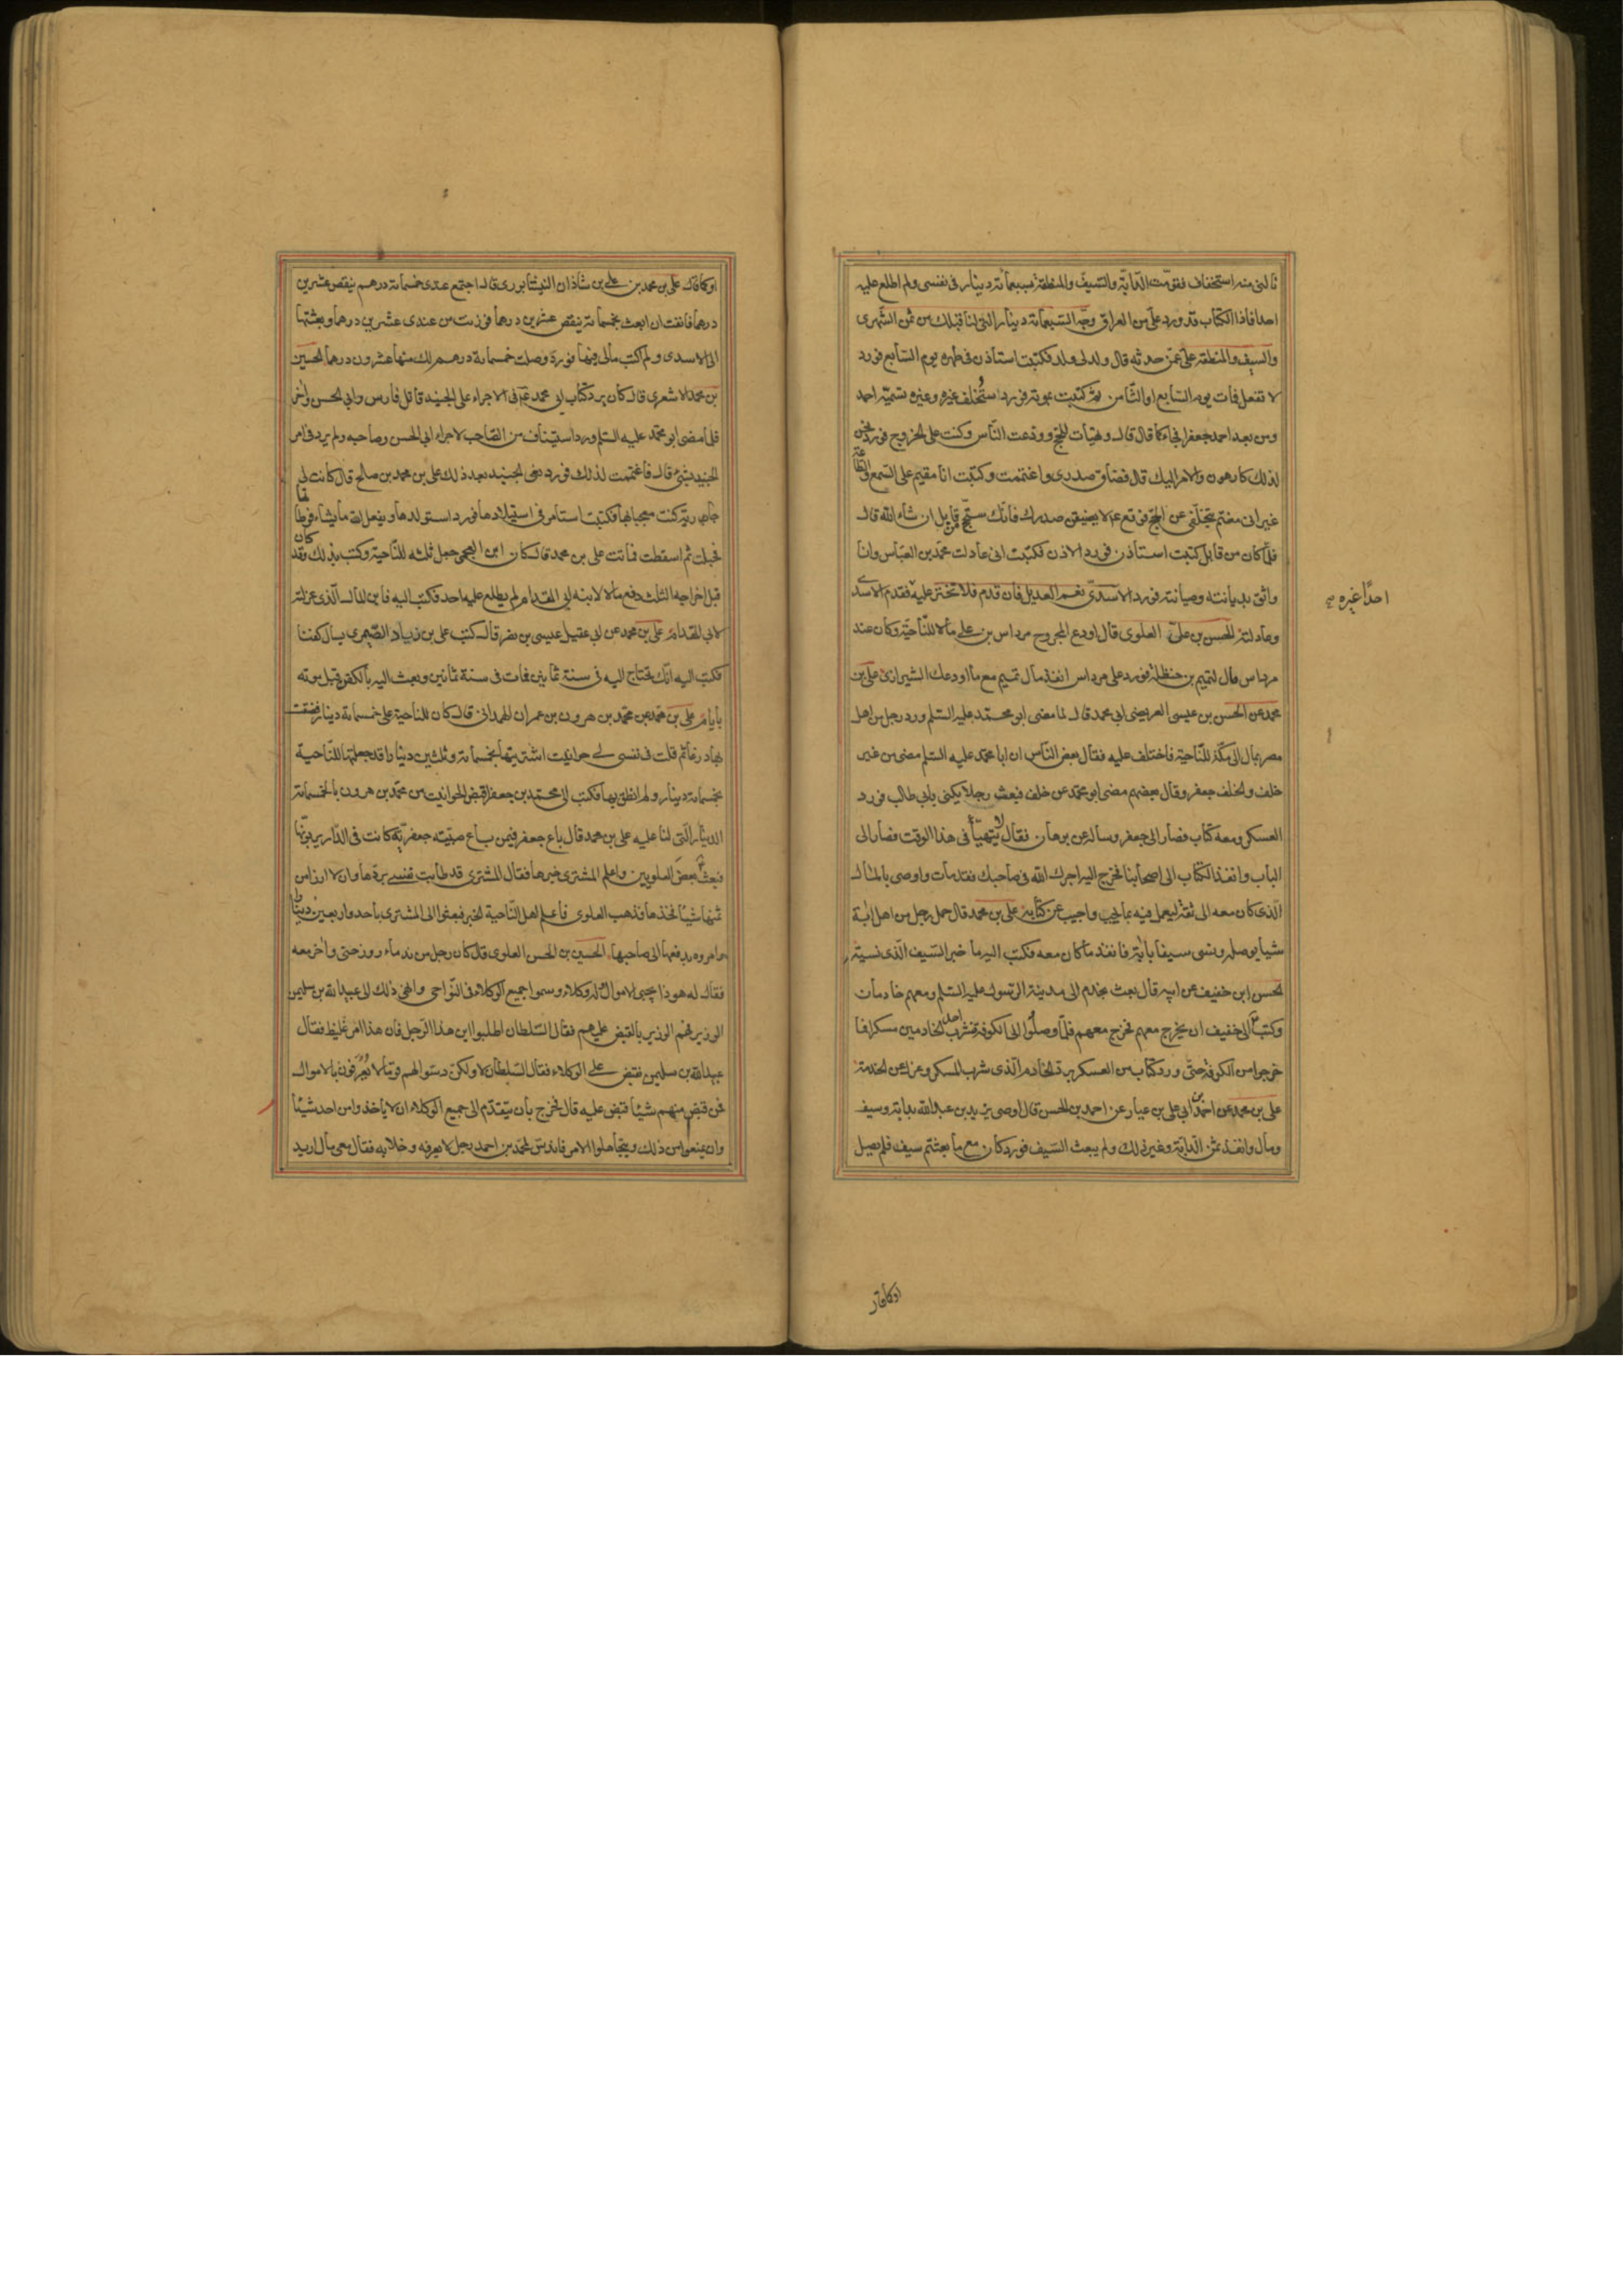 نالنى منه استخفاف فقومت الدابة والسيف والمنطقة بسبعمائة دينار فى نفسى ولم اطلع عليه
احدا فاذا الكتاب قد ورد على من العراق وجه السبعمائة دينار التى لنا قبلك من ثمن الشهرى
والسيف والمنطقة على عمن حدثه قال ولد لى ولد فكتبت استاذن فى طهره يوم السابع فورد
لا تفعل فمات يوم السابع او الثامن ثم كتبت بموته فورد استخلف غيره وغيره تسميه احمد
ومن بعد احمد جعفرا فجاء كما قال قال وتهيأت للحج وودعت الناس وكنت على الخروج فورد نحن
لذلك كارهون والامر اليك قال فضاق صدرى واغتممت وكتبت انا مقيم على السمع والطاعة
غير انى مغتم بتخلفى عن الحج فوقع ع لا يضيقن صدرك فانك ستحج من قابل ان شاء الله قال
فلما كان من قابل كتبت استأذن فورد الاذن فكتبت انى عادلت محمد بن العباس وانا
واثق بديانته وصيانته فورد الاسدى نعم العديل فان قدم فلا تختر عليه فقدم الاسدى
احدا غيره
وعادلته الحسن بن على العلوى قال اودع المجروح مرداس بن على مالا للناحية وكان عند
مرداس مال لتميم بن حنظلة فورد على مرداس انفذ مال تميم مع ما اودعك الشيرازى على بن
محمد عن الحسن بن عيسى العريضى ابى محمد قال لما مضى ابو محمد عليه السلم ورد رجل من اهل
مصر بمال الى مكة للناحية فاختلف عليه فقال بعض الناس ان ابا محمد عليه السلم مضى من غير
خلف والخلف جعفر وقال بعضهم مضى ابو محمد عن خلف فبعث رجلا يكنى بابى طالب فورد
العسكر ومعه كتاب فصار الى جعفر وساله عن برهان فقال لا يتهيأ فى هذا الوقت فصار الى
الباب وانفذ الكتاب الى اصحابنا فخرج اليه اجرك الله فى صاحبك فقد مات واوصى بالمال
الذى كان معه الى ثقة ليعمل فيه بما يجب واجيب عن كتابه على بن محمد قال حمل رجل من اهل ابة
شيا يوصله ونسى سيفا بابة فانفذ ما كان معه فكتب اليه ما خبر السيف الذى نسيته
الحسن ابن خفيف عن ابيه قال بعث بخدم الى مدينة الرسول عليه السلم ومعهم خادمان
وكتب الى خفيف ان يخرج معهم فخرج معهم فلما وصلوا الى الكوفة شرب احد الخادمين مسكرا فما
خرجوا من الكوفة حتى ورد كتاب من العسكر برد الخادم الذى شرب المسكر وعزل عن الخدمة
على بن محمد عن احمد بن ابى على بن عياد عن احمد بن الحسن قال اوصى يزيد بن عبد الله بدابة وسيف
ومال وانفذ ثمن الدابة وغير ذلك ولم يبعث السيف فورد كان مع ما بعثتم سيف فلم يصل
او كما قال
او كما قال على بن محمد بن على بن شاذان النيشابورى قال اجتمع عندى خمسمائة درهم ينقص عشرين
درهما فانفت ان ابعث بخمسمائة ينقص عشرين درهما فوزنت من عندى عشرين درهما وبعثتها
الى الاسدى ولم اكتب مالى فيها فورد وصلت خمسمائة درهم لك منها عشرون درهما الحسين
بن محمد الاشعرى قال كان يرد كتاب ابى محمد ع فى الاجراء على الجنيد قاتل فارس وابى الحسن واخر
فلما مضى ابو محمد عليه السلم ورد استيناف من الصاحب لاجراء ابى الحسن وصاحبه ولم يرد فى امر
الجنيد بشئ قال فاغتممت لذلك فورد نعى الجنيد بعد ذلك على بن محمد بن صالح قال كانت لى
جارية كنت معجبا بها فكتبت استامر فى استيلادها فورد استولدها ويفعل الله ما يشاء فوطأتها
فحبلت ثم اسقطت فماتت على بن محمد قال كان ابن العجمى جعل ثلثه للناحية وكتب بذلك وقد كان
قبل اخراجه الثلث دفع مالا لابنه ابى المقدام لم يطلع عليه احد فكتب اليه فاين المال الذى عزلته
لابى المقدام على بن محمد عن ابى عقيل عيسى بن نصر قال كتب على بن زياد الصيمرى يسأل كفنا
فكتب اليه انك تحتاج اليه فى سنة ثمانين فمات فى سنة ثمانين وبعث اليه بالكفن قبل موته
بايام على بن محمد عن محمد بن هرون بن عمران الهمدانى قال كان للناحية على خمسمائة دينار فضقت
بها ذرعا ثم قلت فى نفسى لى حوانيت اشتريتها بخمسمائة وثلثين دينارا قد جعلتها للناحية
بخمسمائة دينار ولم انطق بها فكتب الى محمد بن جعفر اقبض الحوانيت من محمد بن هرون بالخمسمائة
الدينار التى لنا عليه على بن محمد قال باع جعفر فيمن باع صبية جعفرية كانت فى الدار يربونها
فبعث بعض العلويين واعلم المشترى خبرها فقال المشترى قد طابت نفسى بردها وان لا ارزا من
ثمنها شيئا فخذها فذهب العلوى فاعلم اهل الناحية الخبر فبعثوا الى المشترى باحد واربعين دينارا
وامروه بدفعها الى صاحبها الحسين بن الحسن العلوى قال كان رجل من ندماء روز حسنى واخر معه
فقال له هو ذا يجبى الاموال وله وكلاء وسموا جميع الوكلاء فى النواحى وانهى ذلك الى عبيد الله بن سليمن
الوزير فهم الوزير بالقبض عليهم فقال السلطان اطلبوا اين هذا الرجل فان هذا امر غليظ فقال
عبيد الله بن سليمن نقبض على الوكلاء فقال السلطان لا ولكن دسوا لهم قوما لا يعرفون بالاموال
فمن قبض منهم شيئا قبض عليه قال فخرج بان يتقدم الى جميع الوكلاء ان لا يأخذوا من احد شيئا
وان يمتنعوا من ذلك ويتجاهلوا الامر فاندس لمحمد بن احمد رجل لا يعرفه وخلا به فقال معى مال اريد